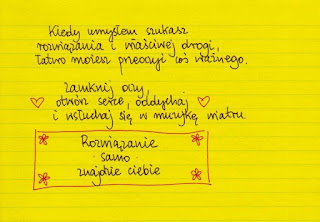 Kiedy umysłem szukasz
rozwiązania i właściwej drogi,
łatwo możesz przeoczyć coś ważnego.
Zamknij oczy,
otwórz serce, oddychaj
i wsłuchaj się w muzykę wiatru.
Rozwiązanie
samo
znajdzie ciebie